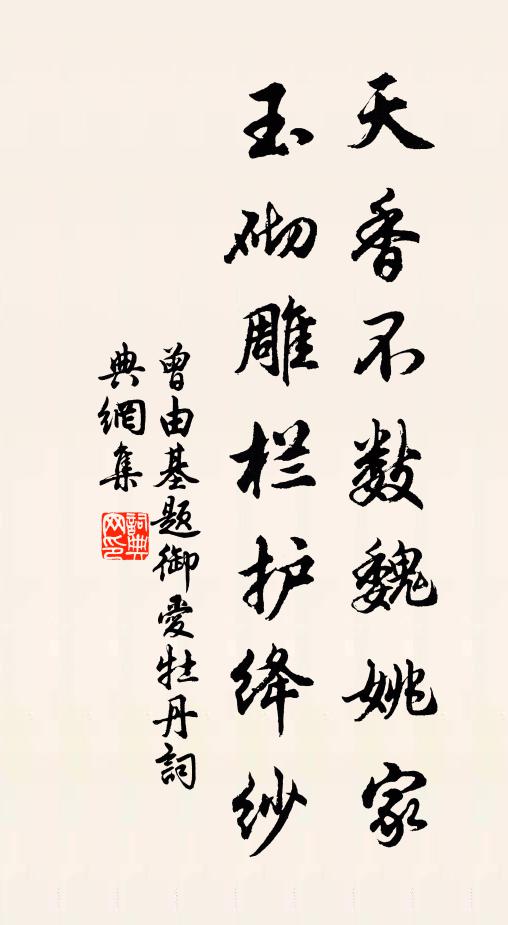 天香不数魏姚家
玉砌雕栏护绛纱
曾由基題御愛牡丹詞
典網集
詞典
网印